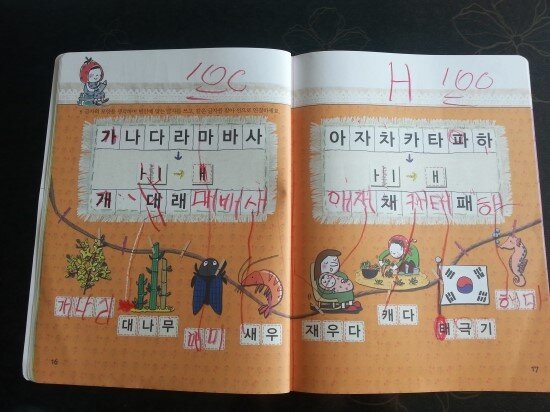 100
가나다라마바사
ㅏㅣ → ㅐ
개 대래매배새
개나리
대나무
매미
새우
16
H 100
아자차카타파하
ㅏㅣ → ㅐ
애재채캐태패해
재우다
캐다
태극기
17